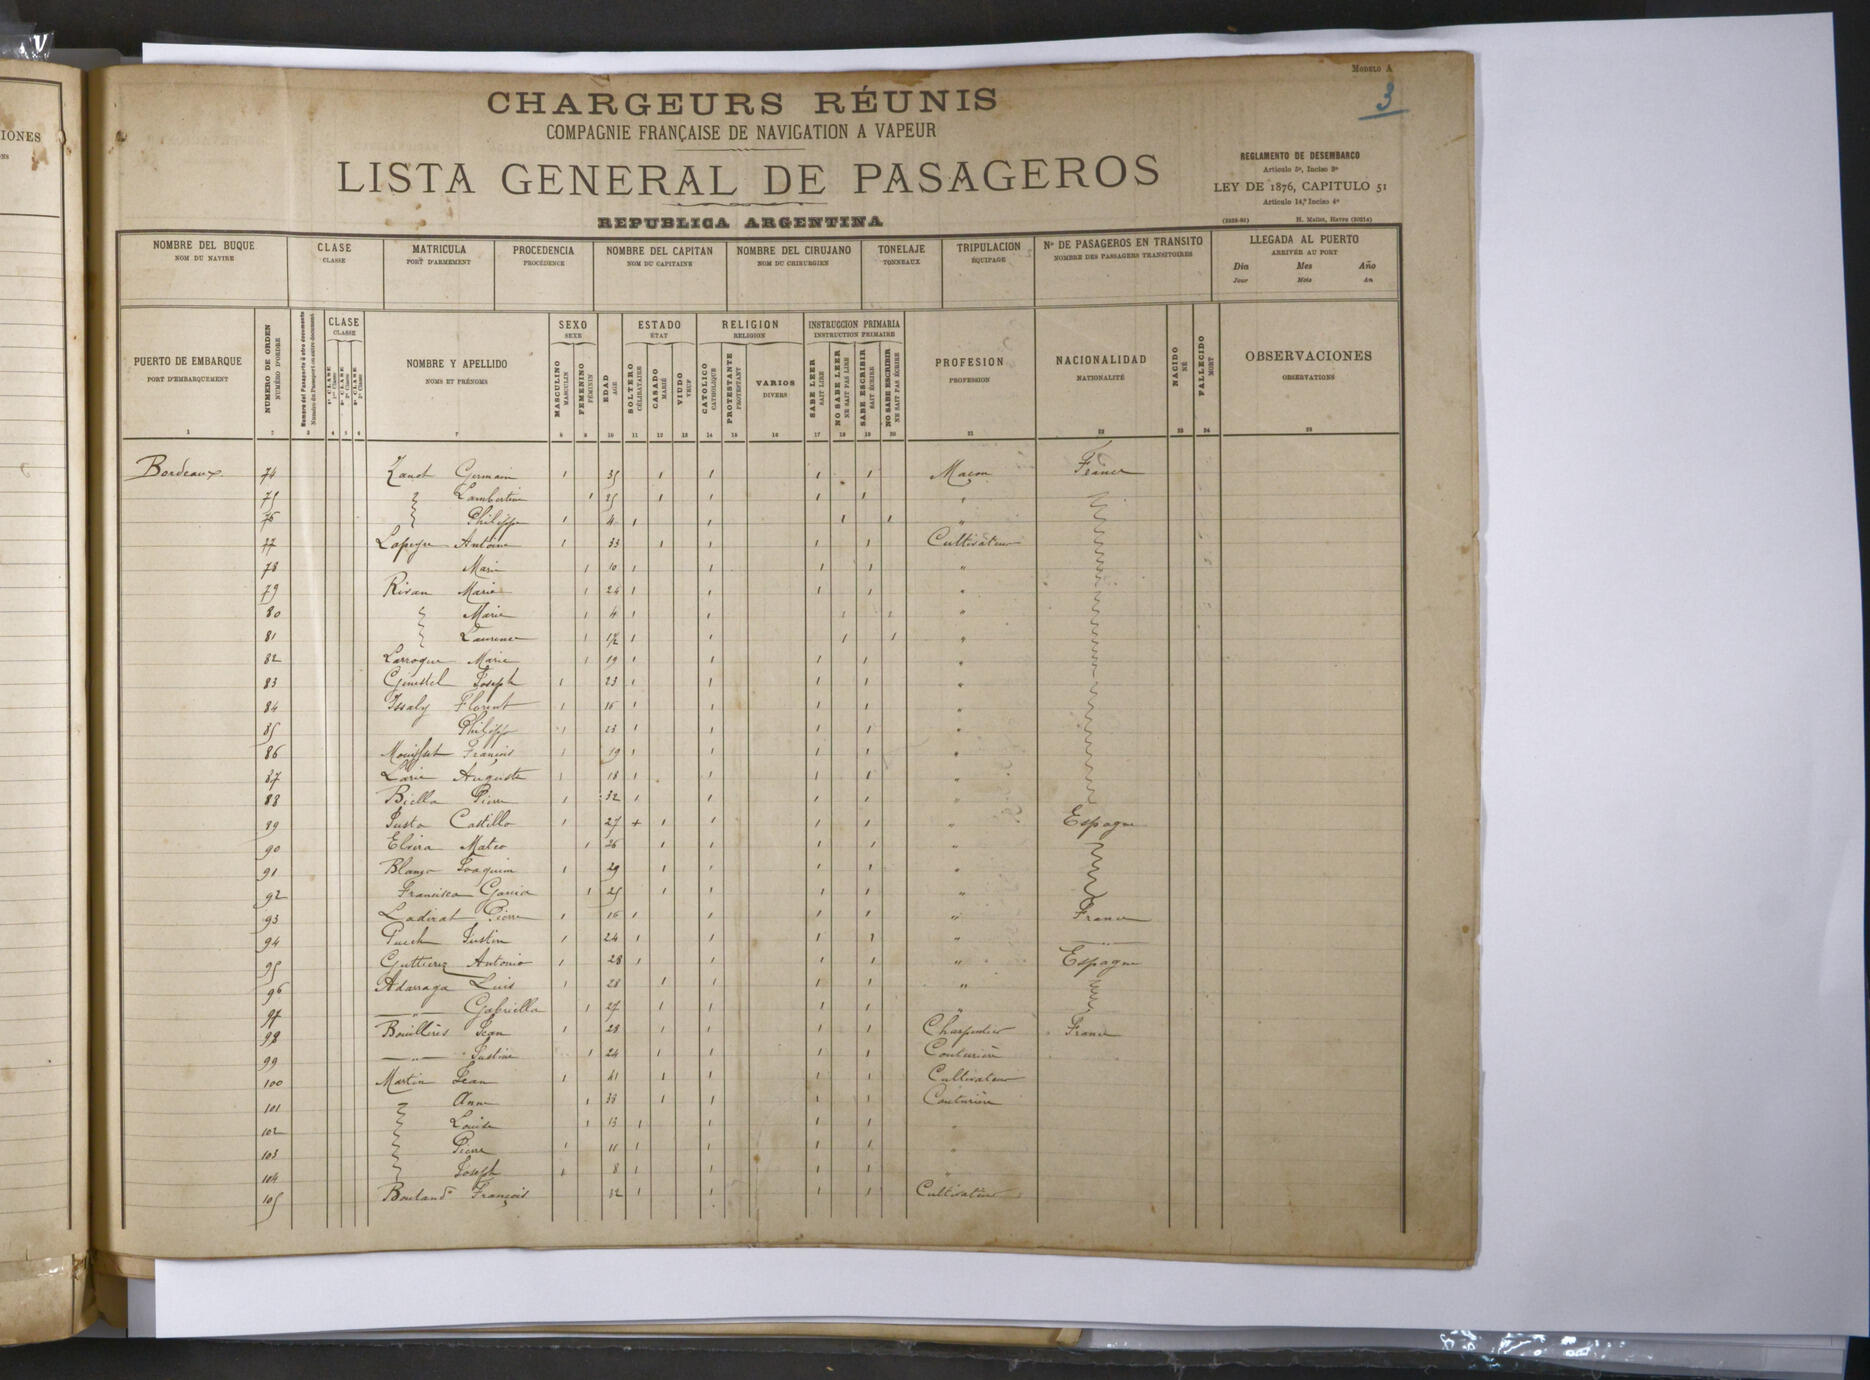 IONES
NS
MODELO A
3
CHARGEURS RÉUNIS
COMPAGNIE FRANÇAISE DE NAVIGATION A VAPEUR
LISTA GENERAL DE PASAGEROS
REPUBLICA ARGENTINA
REGLAMENTO DE DESEMBARCO
Articulo 5º, Inciso 3º
LEY DE 1876, CAPITULO 51
Articulo 14,º Inciso 4º
H. Mallet, Havre (3021A)
NOMBRE DEL BUQUE CLASE MATRICULA PROCEDENCIA NOMBRE DEL CAPITAN NOMBRE DEL CIRUJANO TONELAJE TRIPULACION Nº DE PASAGEROS EN TRANSITO LLEGADA AL PUERTO
NOM DU NAVIRE CLASSE PORT D'ARMEMENT PROCÉDENCE NOM DU CAPITAINE NOM DU CHIRURGIEN TONNEAUX ÉQUIPAGE NOMBRE DES PASSAGERS TRANSITOIRES ARRIVÉE AU PORT
Dia Mes Año
Jour Mois An
PUERTO DE EMBARQUE
PORT D'EMBARQUEMENT
NUMERO DE ORDEN
NUMÉRO D'ORDRE
Numero del Pasaporte ú otro documento
Numéro du Passeport ou autre document
CLASE
CLASSE
1ª CLASE
1re Classe
2ª CLASE
2e Classe
3ª CLASE
3e Classe
NOMBRE Y APELLIDO
NOMS ET PRÉNOMS
SEXO
SEXE
MASCULINO
MASCULIN
FEMENINO
FÉMININ
EDAD
AGE
ESTADO
ÉTAT
SOLTERO
CÉLIBATAIRE
CASADO
MARIÉ
VIUDO
VEUF
RELIGION
RELIGION
CATOLICO
CATHOLIQUE
PROTESTANTE
PROTESTANT
VARIOS
DIVERS
INSTRUCCION PRIMARIA
INSTRUCTION PRIMAIRE
SABE LEER
SAIT LIRE
NO SABE LEER
NE SAIT PAS LIRE
SABE ESCRIBIR
SAIT ÉCRIRE
NO SABE ESCRIBIR
NE SAIT PAS ÉCRIRE
PROFESION
PROFESSION
NACIONALIDAD
NATIONALITÉ
NACIDO
NÉ
FALLECIDO
MORT
OBSERVACIONES
OBSERVATIONS
1 2 3 4 5 6 7 8 9 10 11 12 13 14 15 16 17 18 19 20 21 22 23 24 25
Bordeaux 74 Germain 1 35 1 1 1 1 Maçon France
75 Lambertine 1 25 1 1 1 1 "
76 Philippe 1 4 1 1 1 1 "
77 Lapeyre Antoine 1 33 1 1 1 1 Cultivateur
78 Marie 1 10 1 1 1 1 "
79 Marie 1 24 1 1 1 1 "
80 Marie 1 4 1 1 1 1 "
81 Laurence 1 1 1 1 1 "
82 Larroque Marie 1 19 1 1 1 1 "
83 Ginestel Joseph 1 23 1 1 1 1 "
84 Issaly Florent 1 16 1 1 1 1 "
85 Philippe 1 23 1 1 1 1 "
86 Mouysset François 1 19 1 1 1 1 "
87 Auguste 1 18 1 1 1 1 "
88 Biella Pierre 1 32 1 1 1 1 "
89 Justo Castillo 1 27 + 1 1 1 1 " Espagne
90 Elvira Mateo 1 26 1 1 1 1 "
91 Joaquim 1 29 1 1 1 1 "
92 Francisca Garcia 1 25 1 1 1 1 "
93 Ladirat Pierre 1 16 1 1 1 1 " France
94 Puech Justin 1 24 1 1 1 1 " "
95 Guttierez Antonio 1 28 1 1 1 1 " Espagne
96 Adarraga Luis 1 28 1 1 1 1 "
97 " Gabriella 1 27 1 1 1 1 "
98 Bouillères Jean 1 28 1 1 1 1 Charpentier France
99 " Justine 1 24 1 1 1 1 Couturière
100 Martin Jean 1 41 1 1 1 1 Cultivateur
101 Anne 1 33 1 1 1 1 Couturière
102 Louise 1 13 1 1 1 1 "
103 Pierre 1 11 1 1 1 1 "
104 Joseph 1 8 1 1 1 1 "
105 François 32 1 1 1 1 Cultivateur